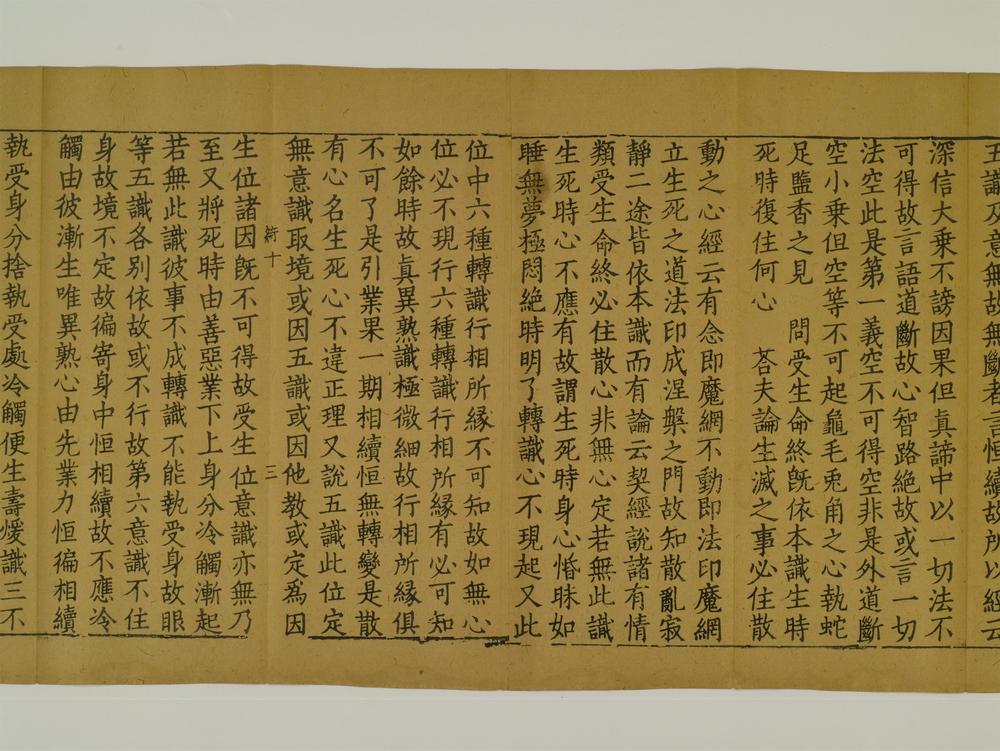 五識及意無故無斷者言恒續故所以經云
深信大乗不謗因果但眞諦中以一切法不
可得故言語道斷故心智路絶故或言一切
法空此是第一義空不可得空非是外道斷
空小乗但空等不可起龜毛兎角之心執蛇
足鹽香之見　問受生命終旣依本識生時
死時復住何心　荅夫論生滅之事必住散
動之心經云有念即魔網不動即法印魔網
立生死之道法印成涅槃之門故知散亂寂
靜二途皆依本識而有論云契經說諸有情
類受生命終必住散心非無心定若無此識
生死時心不應有故謂生死時身心惛昧如
睡無夢極悶絶時明了轉識心不現起又此
位中六種轉識行相所縁不可知故如無心
位必不現行六種轉識行相所縁有必可知
如餘時故眞異熟識極微細故行相所縁俱
不可了是引業果一期相續恒無轉變是散
有心名生死心不違正理又說五識此位定
無意識取境或因五識或因他教或定爲因
綺十　三
生位諸因旣不可得故受生位意識亦無乃
至又將死時由善惡業下上身分冷觸漸起
若無此識彼事不成轉識不能執受身故眼
等五識各別依故或不行故第六意識不住
身故境不定故徧寄身中恒相續故不應冷
觸由彼漸生唯異熟心由先業力恒徧相續
執受身分捨執受處冷觸便生壽煖識三不